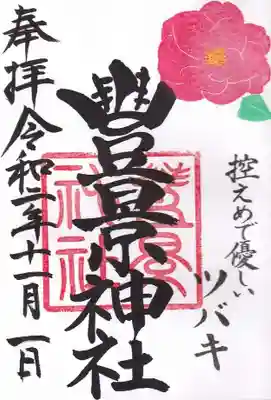 控えめで優しい
ツバキ
豐景神社
奉拝 令和二年十一月一日